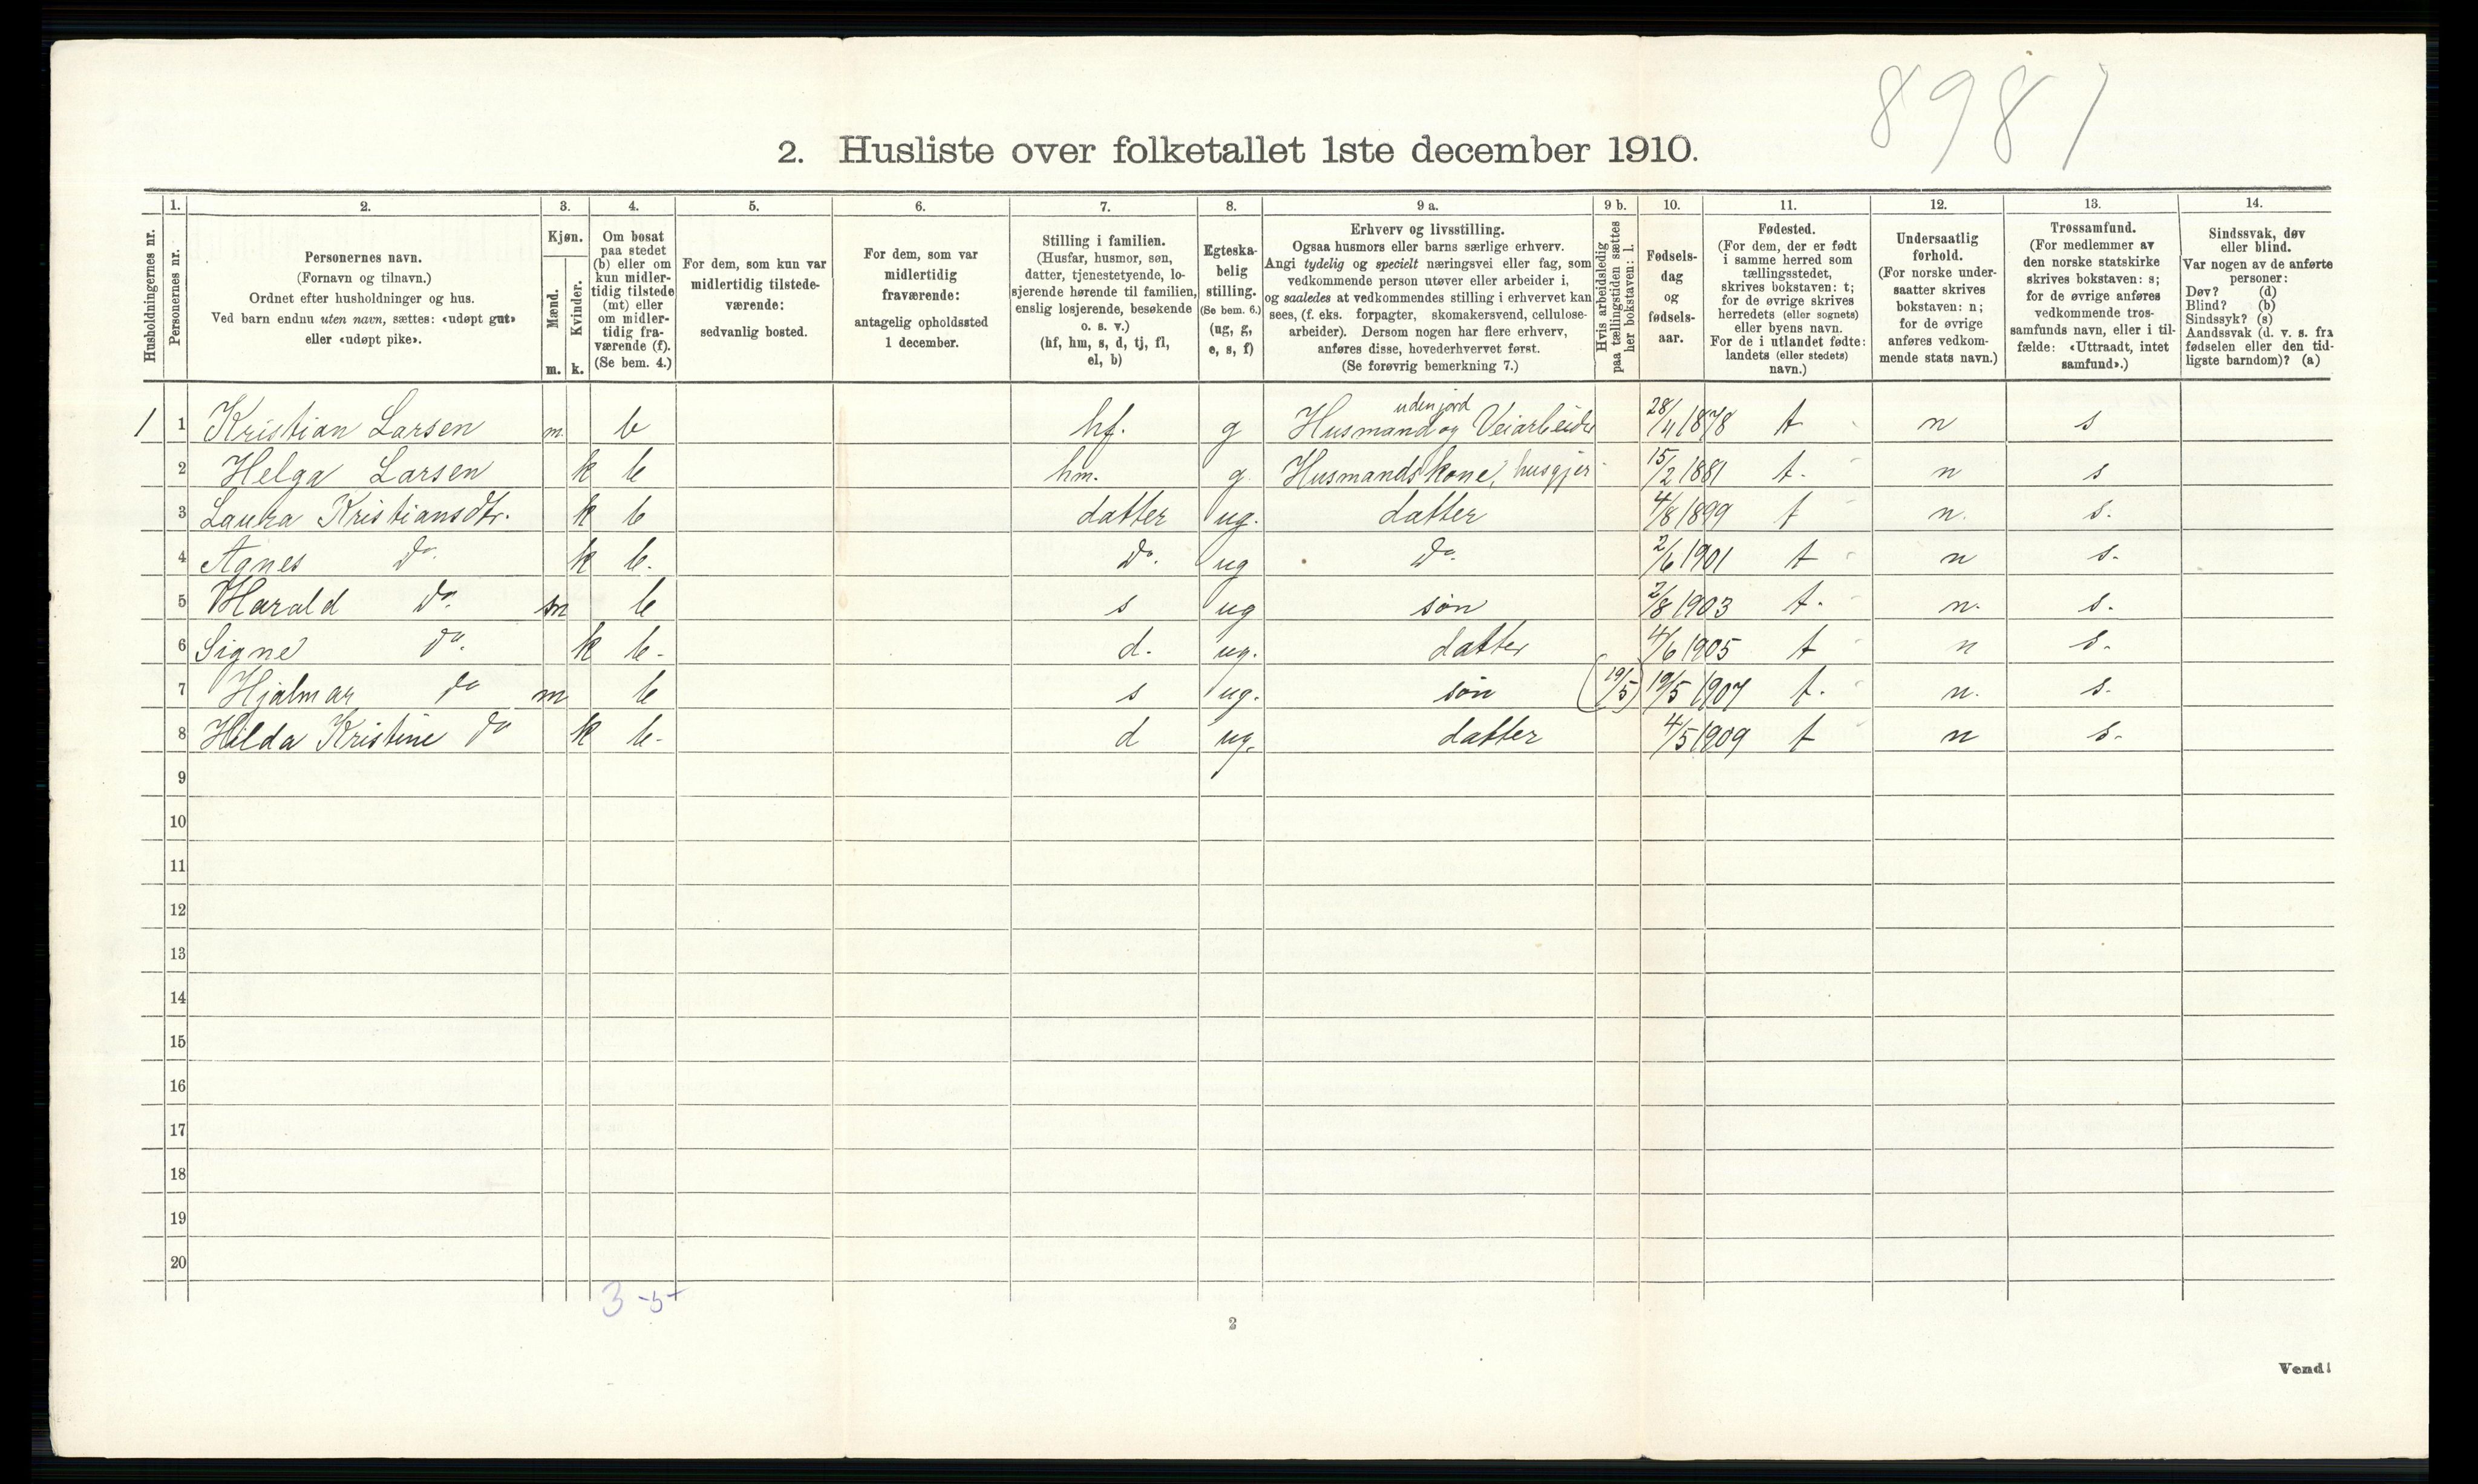 8981
2. Husliste over folketallet 1ste december 1910.
Husholdningernes nr.
1.
Personernes nr.
2.
Personernes navn.
(Fornavn og tilnavn.)
Ordnet efter husholdninger og hus.
Ved barn endnu uten navn, sættes: «udøpt gut»
eller «udøpt pike».
3.
Kjøn.
Mænd.
Kvinder.
m. k.
4.
Om bosat
paa stedet
(b) eller om
kun midler-
tidig tilstede
(mt) eller
om midler-
tidig fra-
værende (f).
(Se bem. 4.)
5.
For dem, som kun var
midlertidig tilstede-
værende:
sedvanlig bosted.
6.
For dem, som var
midlertidig
fraværende:
antagelig opholdssted
1 december.
7.
Stilling i familien.
(Husfar, husmor, søn,
datter, tjenestetyende, lo-
sjerende hørende til familien,
enslig losjerende, besøkende
o. s. v.)
(hf, hm, s, d, tj, fl,
el, b)
8.
Egteska-
belig
stilling.
(Se bem. 6.)
(ug, g,
e, s, f)
9 a.
Erhverv og livsstilling.
Ogsaa husmors eller barns særlige erhverv.
Angi tydelig og specielt næringsvei eller fag, som
vedkommende person utøver eller arbeider i,
og saaledes at vedkommendes stilling i erhvervet kan
sees, (f. eks. forpagter, skomakersvend, cellulose-
arbeider). Dersom nogen har flere erhverv,
anføres disse, hovederhvervet først.
(Se forøvrig bemerkning 7.)
9 b.
Hvis arbeidsledig
paa tællingstiden sættes
her bokstaven: l.
10.
Fødsels-
dag
og
fødsels-
aar.
11.
Fødested.
(For dem, der er født
i samme herred som
tællingsstedet,
skrives bokstaven: t;
for de øvrige skrives
herredets (eller sognets)
eller byens navn.
For de i utlandet fødte:
landets (eller stedets)
navn.)
12.
Undersaatlig
forhold.
(For norske under-
saatter skrives
bokstaven: n;
for de øvrige
anføres vedkom-
mende stats navn.)
13.
Trossamfund.
(For medlemmer av
den norske statskirke
skrives bokstaven: s;
for de øvrige anføres
vedkommende tros-
samfunds navn, eller i til-
fælde: «Uttraadt, intet
samfund».)
14.
Sindssvak, døv
eller blind.
Var nogen av de anførte
personer:
Døv? (d)
Blind? (b)
Sindssyk? (s)
Aandssvak (d. v. s. fra
fødselen eller den tid-
ligste barndom)? (a)
uden jord
1 1 Kristian Larsen m. b hf. g Husmand og Veiarbeider 28/4 1878 t n s
2 Helga Larsen k b hm. g. Husmandskone, husgjer 15/2 1881 t. n s
3 Laura Kristiansdtr. k b datter ug. datter 4/8 1899 t n. s.
4 Agnes do. k b. do. ug do. 2/6 1901 t n s.
5 Harald do. m b s ug søn 2/8 1903 t. n. s.
6 Signe do. k b. d. ug. datter 4/6 1905 t n s.
7 Hjalmar do m b s ug. søn (19/5) 19/5 1907 t. n. s.
8 Hilda Kristine do k b. d ug. datter 4/5 1909 t n s.
9
10
11
12
13
14
15
16
17
18
19
20
3 - 5
2
Vend!